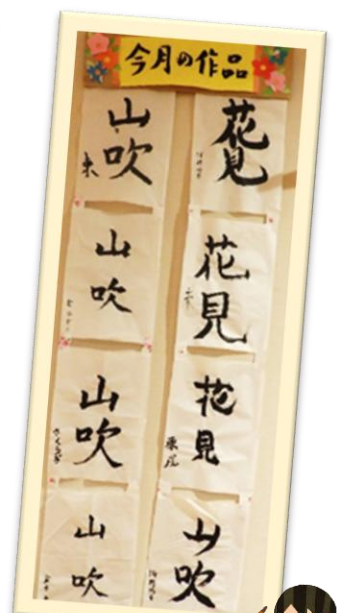 今月の作品
花見
花見
花見
山吹
山吹
山吹
山吹
山吹